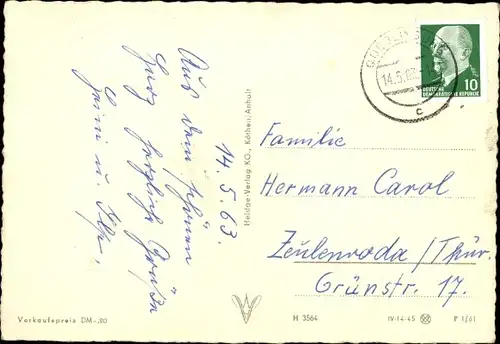 14.5.63.
Aus dem schönen
Harz herzliche Grüße
Heini u. Ilse.
Heldge-Verlag KG., Köthen/Anhalt
14.5.63
c
10
DEUTSCHE
DEMOKRATISCHE REPUBLIK
Familie
Hermann Carol
Zeulenroda / Thür.
Grünstr. 17.
Verkaufspreis DM -,20
H 3564
IV-14-45
P 1/61